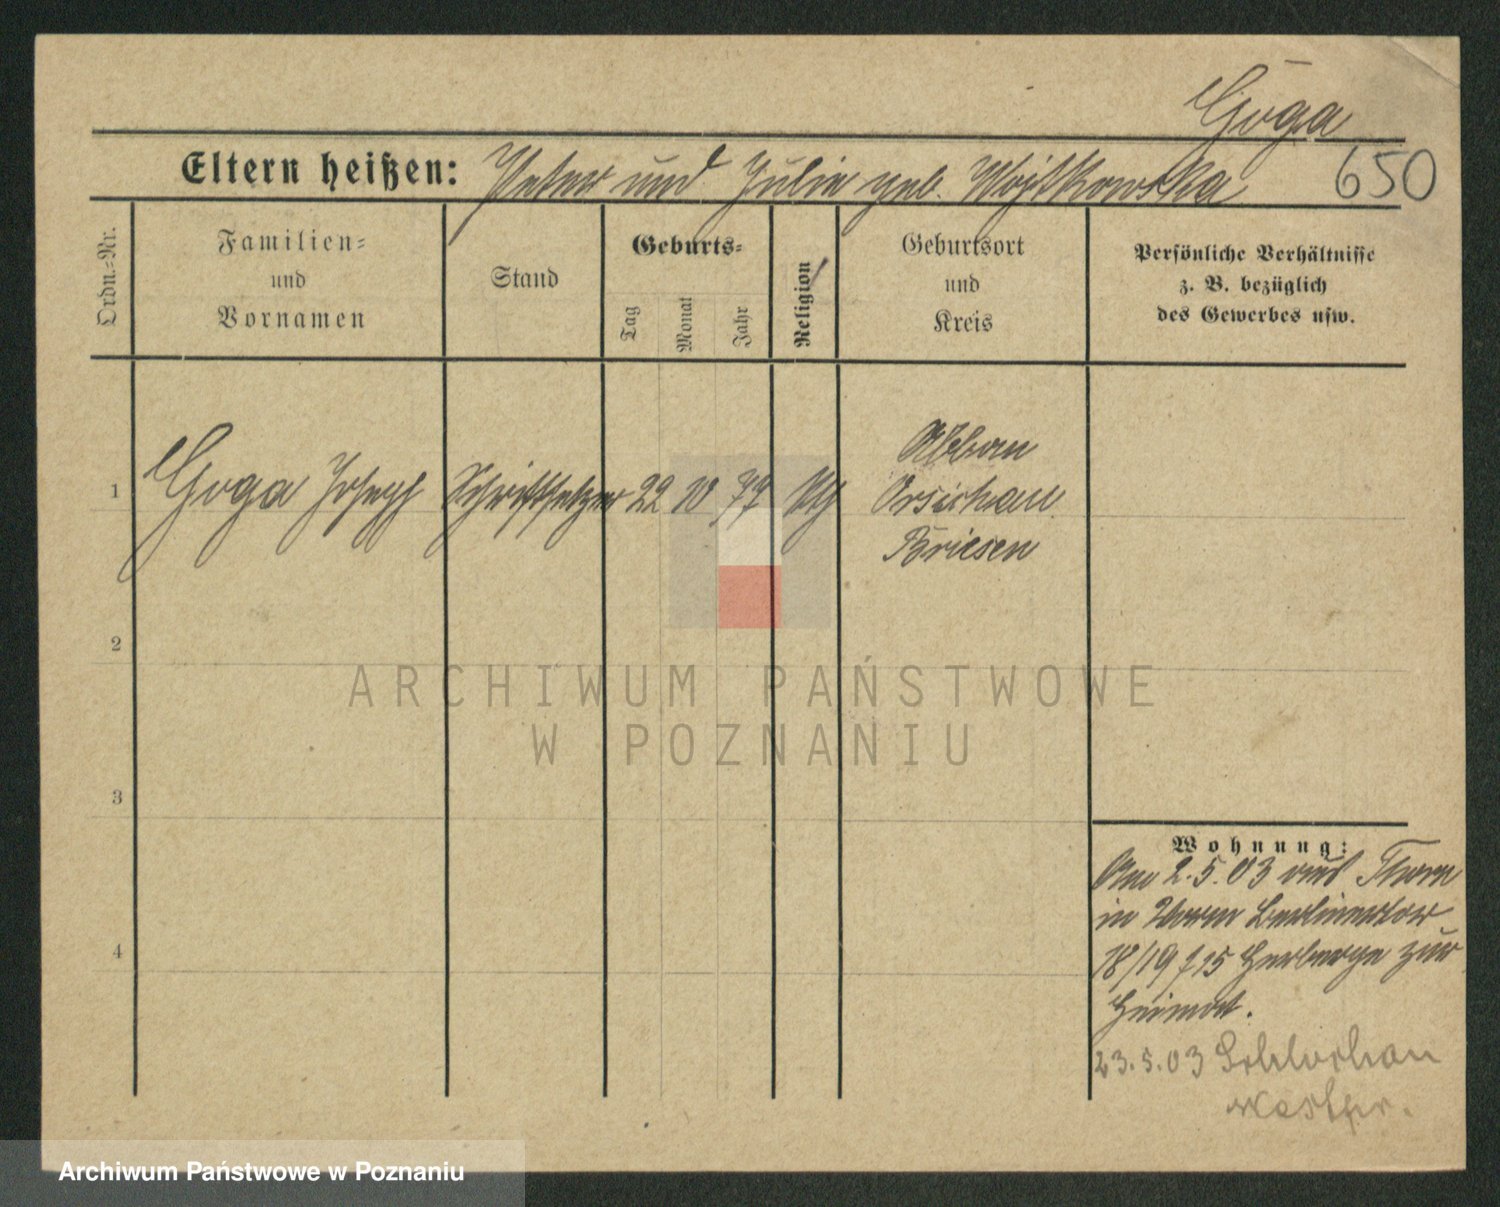 Goga
Eltern heißen: Peter und Julie geb. Wojtkowska 650
Ordn.-Nr.
Familien-
und
Vornamen
Stand
Geburts-
Tag
Monat
Jahr
Religion
Geburtsort
und
Kreis
Persönliche Verhältnisse
z. B. bezüglich
des Gewerbes usw.
1 Goga Joseph Schriftsetzer 22 10 77
Abbau
Orsichau
Briesen
2
3
4
Wohnung:
Am 2.5.03 aus Thorn
in Berlinertor
18/19 Herberge zur
Heimat.
23.5.03 Schlochau
Westpr.
ARCHIWUM PAŃSTWOWE
W POZNANIU
Archiwum Państwowe w Poznaniu